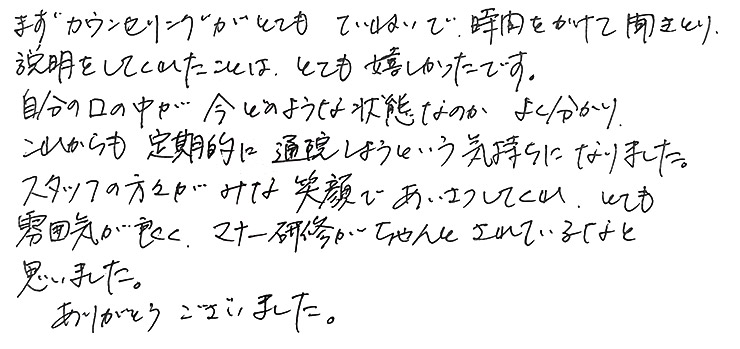 まずカウンセリングがとても ていねいで、時間をかけて聞きとり、
説明をしてくれたことは、とても嬉しかったです。
自分の口の中が 今どのような状態なのか よく分かり、
これからも 定期的に 通院しようという気持ちになりました。
スタッフの方々がみな 笑顔で あいさつしてくれ、とても
雰囲気が良く、マナー研修が ちゃんと されているなと
思いました。
ありがとう ございました。